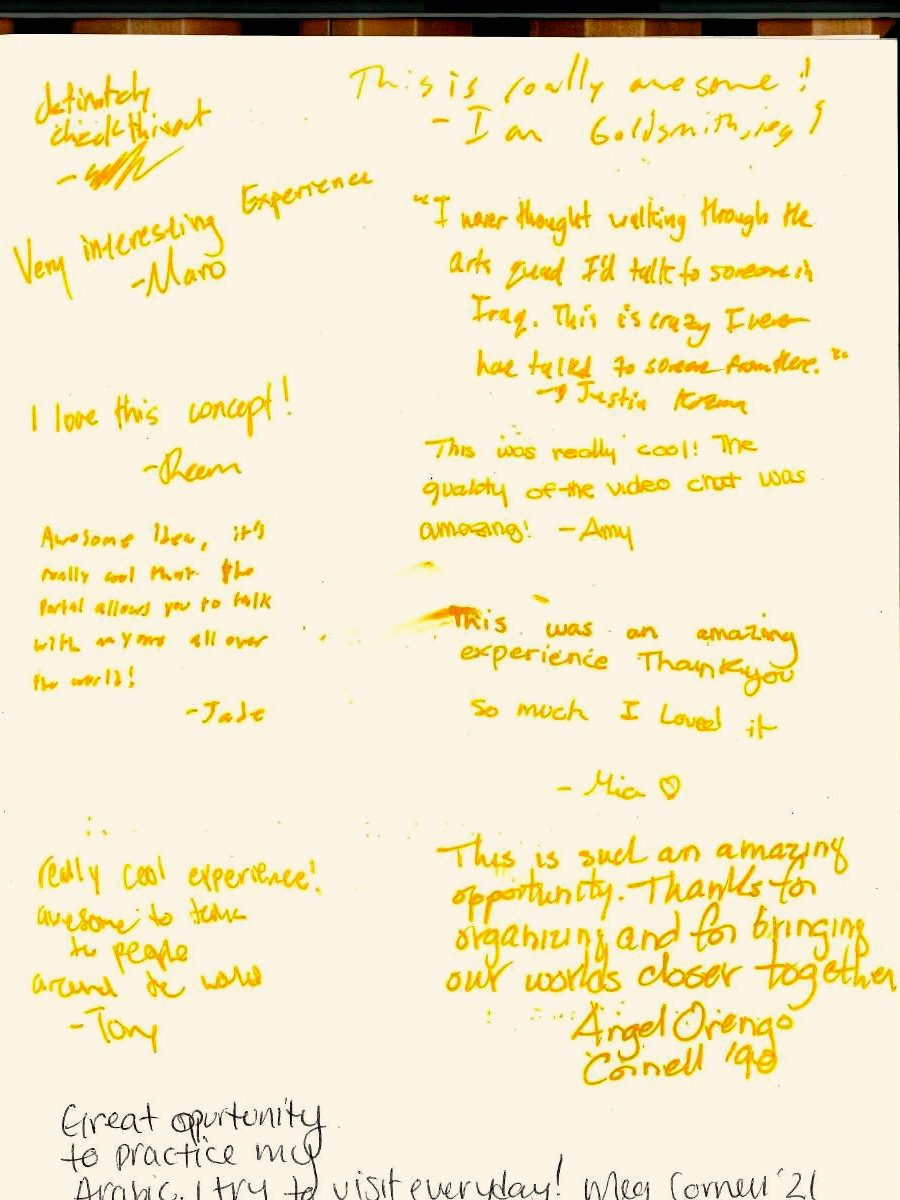 definately
check this out
Very interesting Experience
-Maro
I love this concept!
-Reem
Awesome Idea, it's
really cool that the
Portal allows you to talk
with anyone all over
the world!
-Jade
really cool experience!
awesome to talk
to people
around the world
-Tony
This is really awesome!
- I am Goldsmith,
"I never thought walking through the
arts quad I'd talk to someone in
Iraq. This is crazy I never
have talked to someone from there."
→ Justin
This was really cool! The
quality of the video chat was
amazing! -Amy
This was an amazing
experience Thankyou
So much I Loved it
- Mia ♡
This is such an amazing
opportunity. Thanks for
organizing and for bringing
our worlds closer together
Angel Orengo
Cornell '90
Great oppurtunity
to practice my
Arabic. I try to visit everyday! Meg Cornell '21